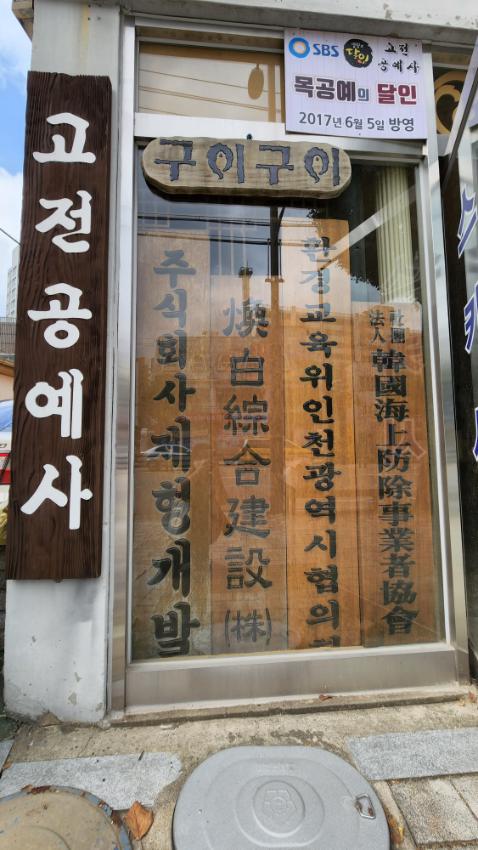 고전공예사
SBS 생활의 달인 고전
공예사
목공예의 달인
2017년 6월 5일 방영
구이구이
주식회사재형개발
煥白綜合建設(株)
환경교육위인천광역시협의회
社團
法人 韓國海上防除事業者協會